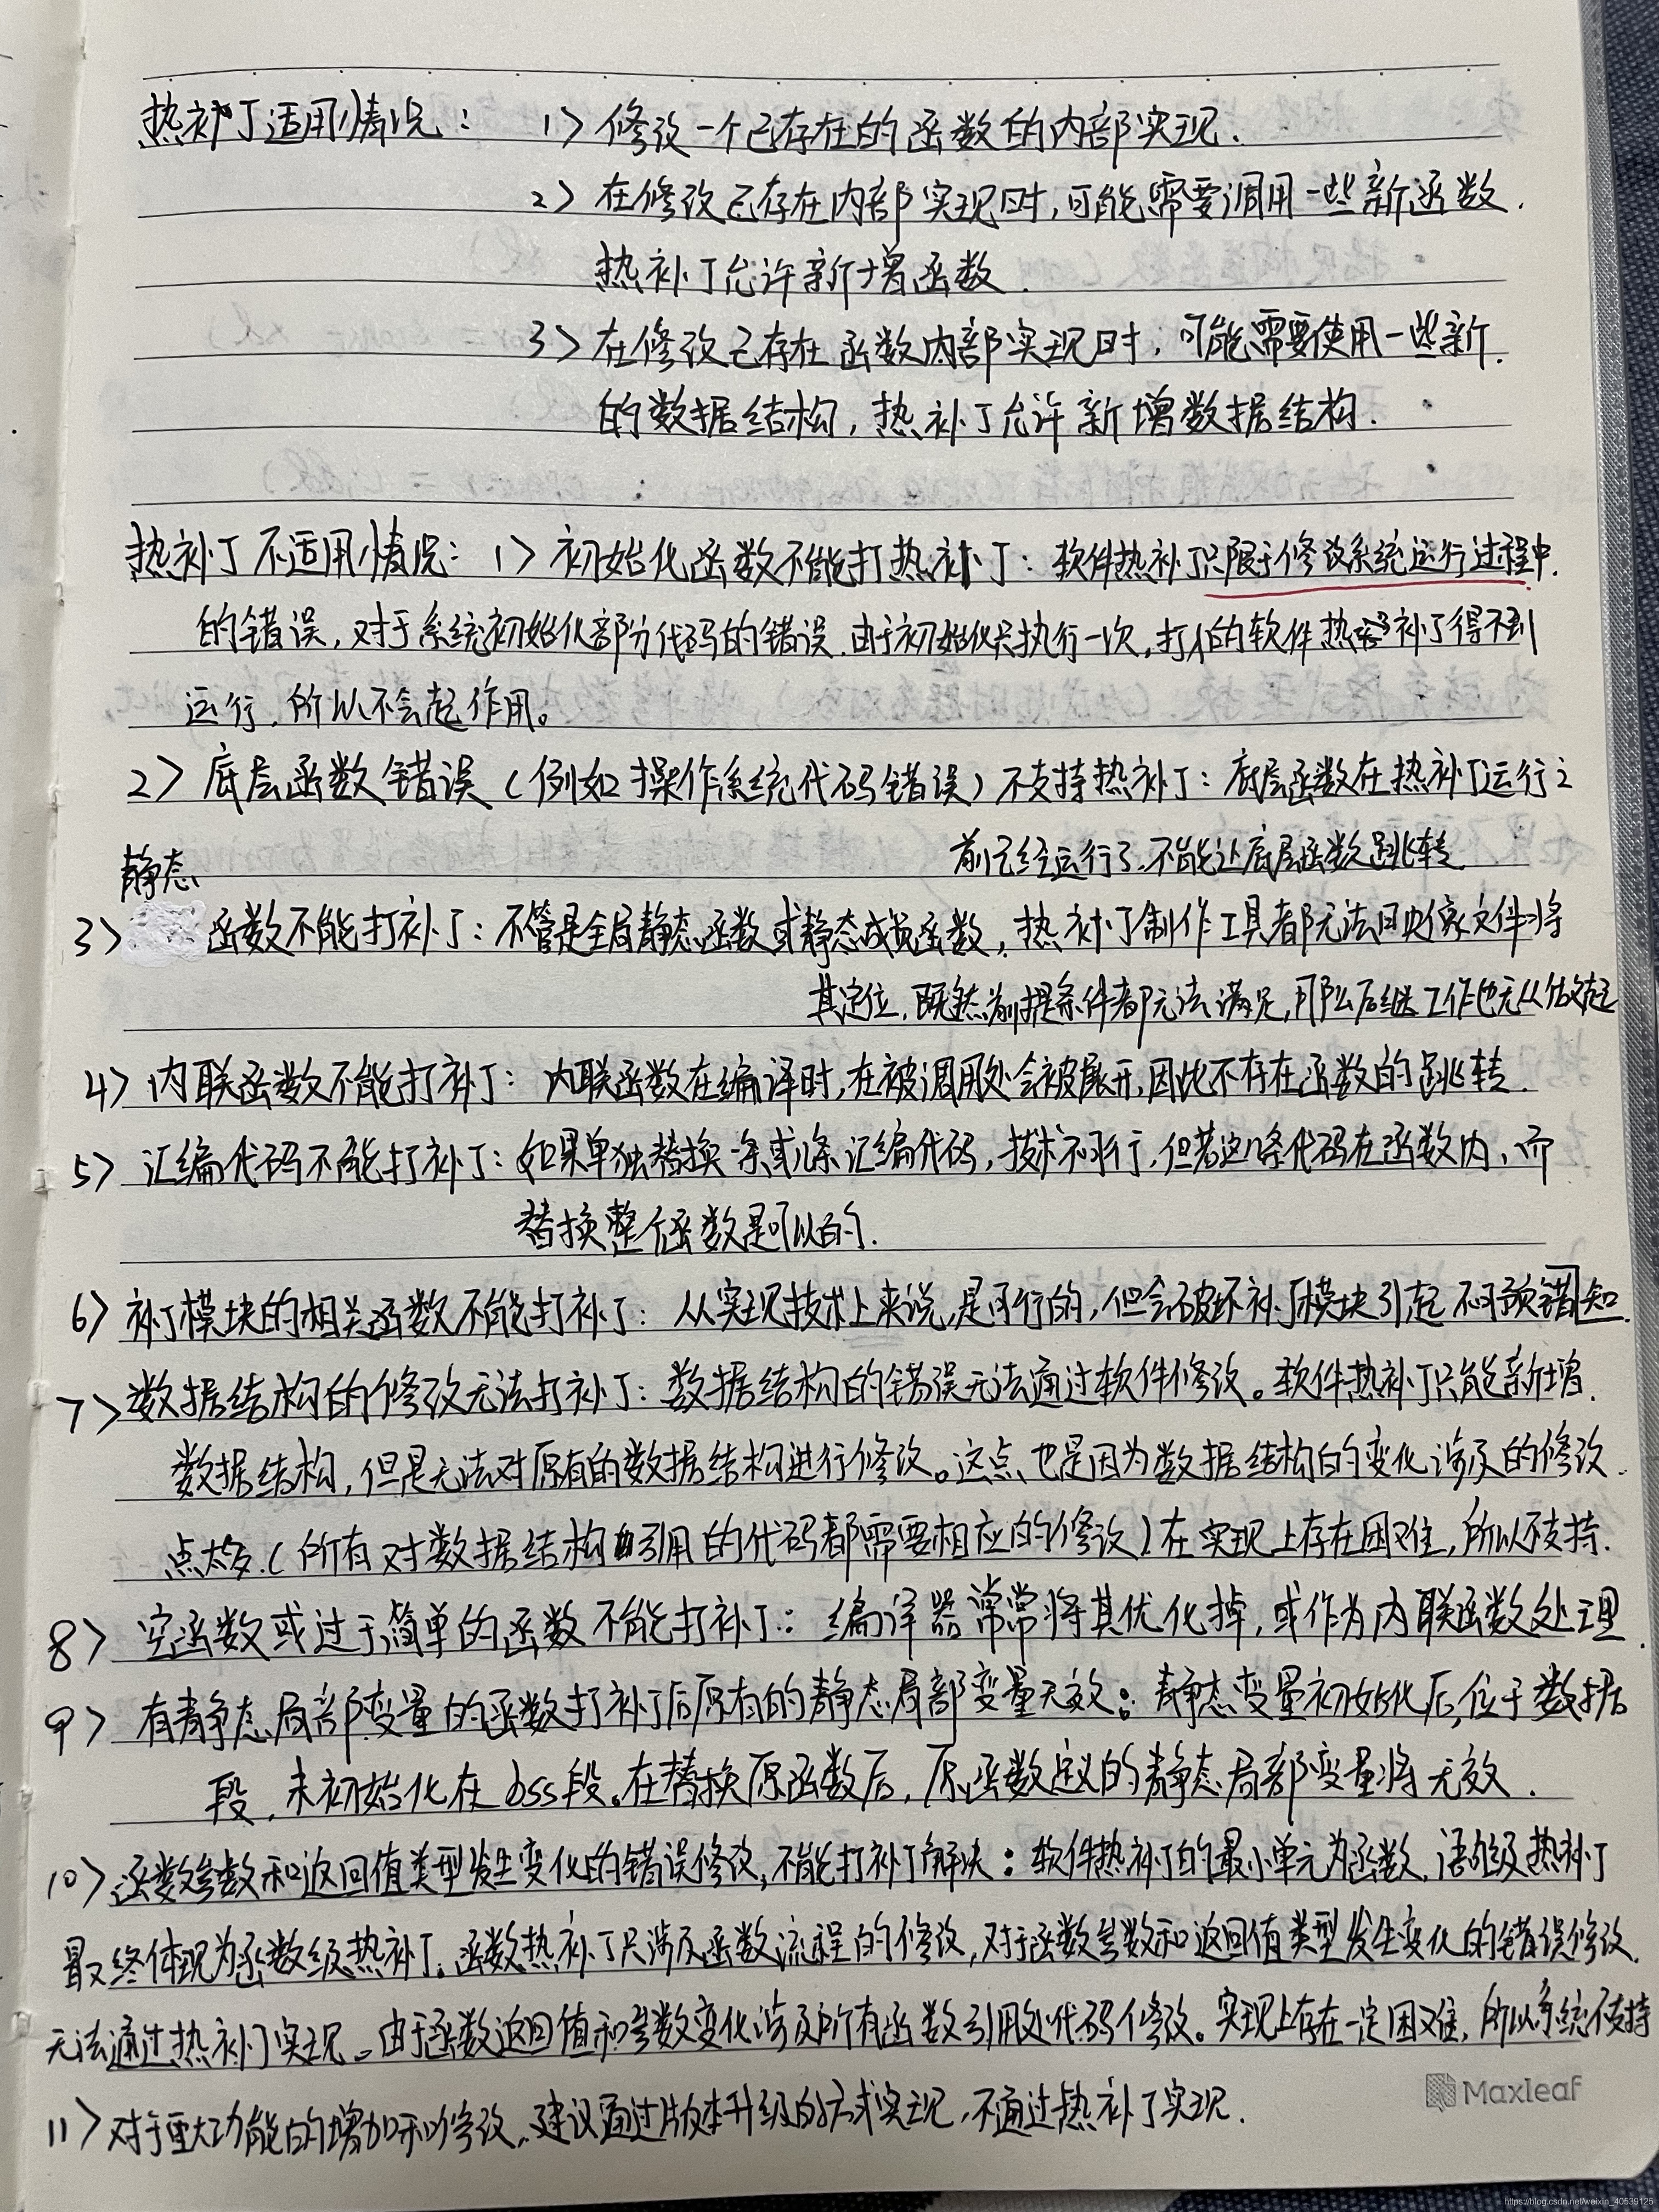 热补丁适用情况： 1> 修改一个已存在的函数的内部实现.
2> 在修改已存在内部实现时,可能需要调用一些新函数.
热补丁允许新增函数.
3> 在修改已存在函数内部实现时,可能需要使用一些新.
的数据结构,热补丁允许新增数据结构.
热补丁不适用情况： 1> 初始化函数不能打热补丁：软件热补丁只限于修改系统运行过程中.
的错误,对于系统初始化部分代码的错误.由于初始化只执行一次,打入的软件热补丁得不到
运行,所以不会起作用。
2> 底层函数错误(例如操作系统代码错误)不支持热补丁：底层函数在热补丁运行之
前已经运行了,不能让底层函数跳转
静态
3> 函数不能打补丁：不管是全局静态函数或静态成员函数,热补丁制作工具都无法目映像文件将
其定位,既然前提条件都无法满足,那么后继工作也无从做起
4> 内联函数不能打补丁：内联函数在编译时,在被调用处会被展开,因此不存在函数的跳转.
5> 汇编代码不能打补丁：如果单独替换一条或几条汇编代码,技术不可行,但若这几条代码在函数内,而
替换整个函数是可以的.
6> 补丁模块的相关函数不能打补丁：从实现技术上来说,是可行的,但会破坏补丁模块引起不可预错知.
7> 数据结构的修改无法打补丁：数据结构的错误无法通过软件修改。软件热补丁只能新增.
数据结构,但是无法对原有的数据结构进行修改。这点也是因为数据结构的变化涉及的修改.
点太多.(所有对数据结构引用的代码都需要相应的修改)在实现上存在困难,所以不支持.
8> 空函数或过于简单的函数不能打补丁：编译器常常将其优化掉,或作为内联函数处理.
9> 有静态局部变量的函数打补丁后原有的静态局部变量无效：静态变量初始化后,位于数据
段,未初始化在bss段。在替换原函数后,原函数定义的静态局部变量将无效.
10> 函数参数和返回值类型发生变化的错误修改,不能打补丁解决：软件热补丁的最小单元为函数,语句级热补丁
最终体现为函数级热补丁。函数热补丁只涉及函数流程的修改,对于函数参数和返回值类型发生变化的错误修改.
无法通过热补丁实现。由于函数返回值和参数变化涉及所有函数引用处代码修改。实现上存在一定困难,所以系统不支持
11> 对于重大功能的增加和修改,建议通过版本升级的方式实现,不通过热补丁实现.
Maxleaf
https://blog.csdn.net/weixin_40539125